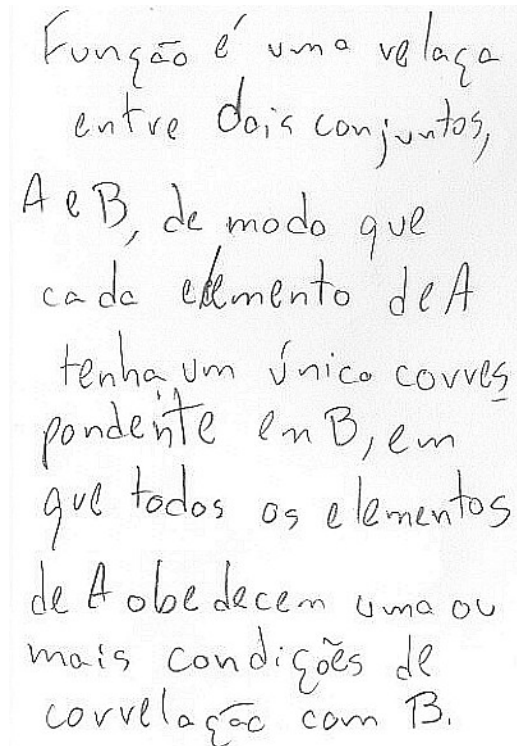 Função é uma relaça
entre dois conjuntos,
A e B, de modo que
cada elemento de A
tenha um único corres
pondente em B, em
que todos os elementos
de A obedecem uma ou
mais condições de
correlação com B.